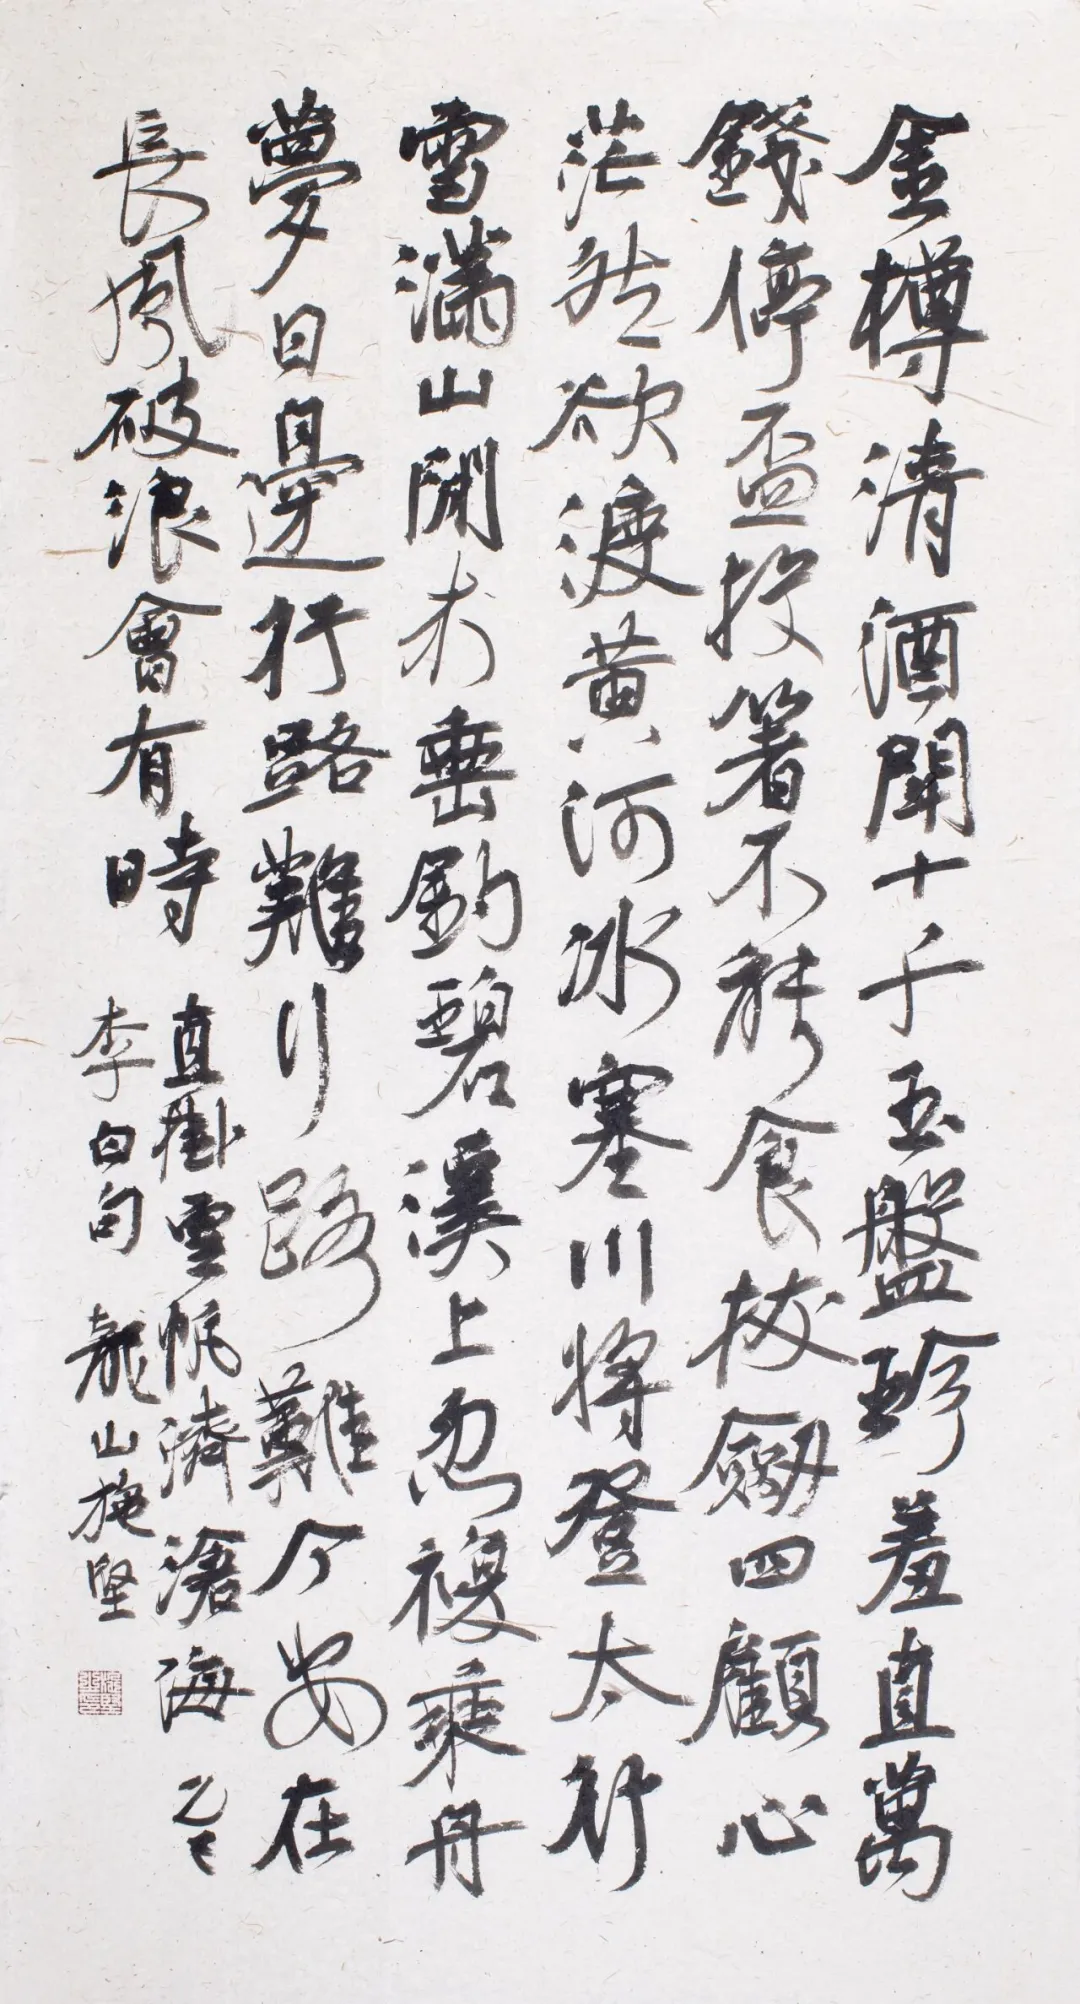 金樽清酒閗十千玉盤珍羞直萬
錢停盃投箸不能食拔劍四顧心
茫然欲渡黃河冰塞川將登太行
雪滿山閒來垂釣碧溪上忽復乘舟
夢日邊行路難行路難今安在
長風破浪會有時
直掛雲帆濟滄海 乙巳
李白句 龍山施堅